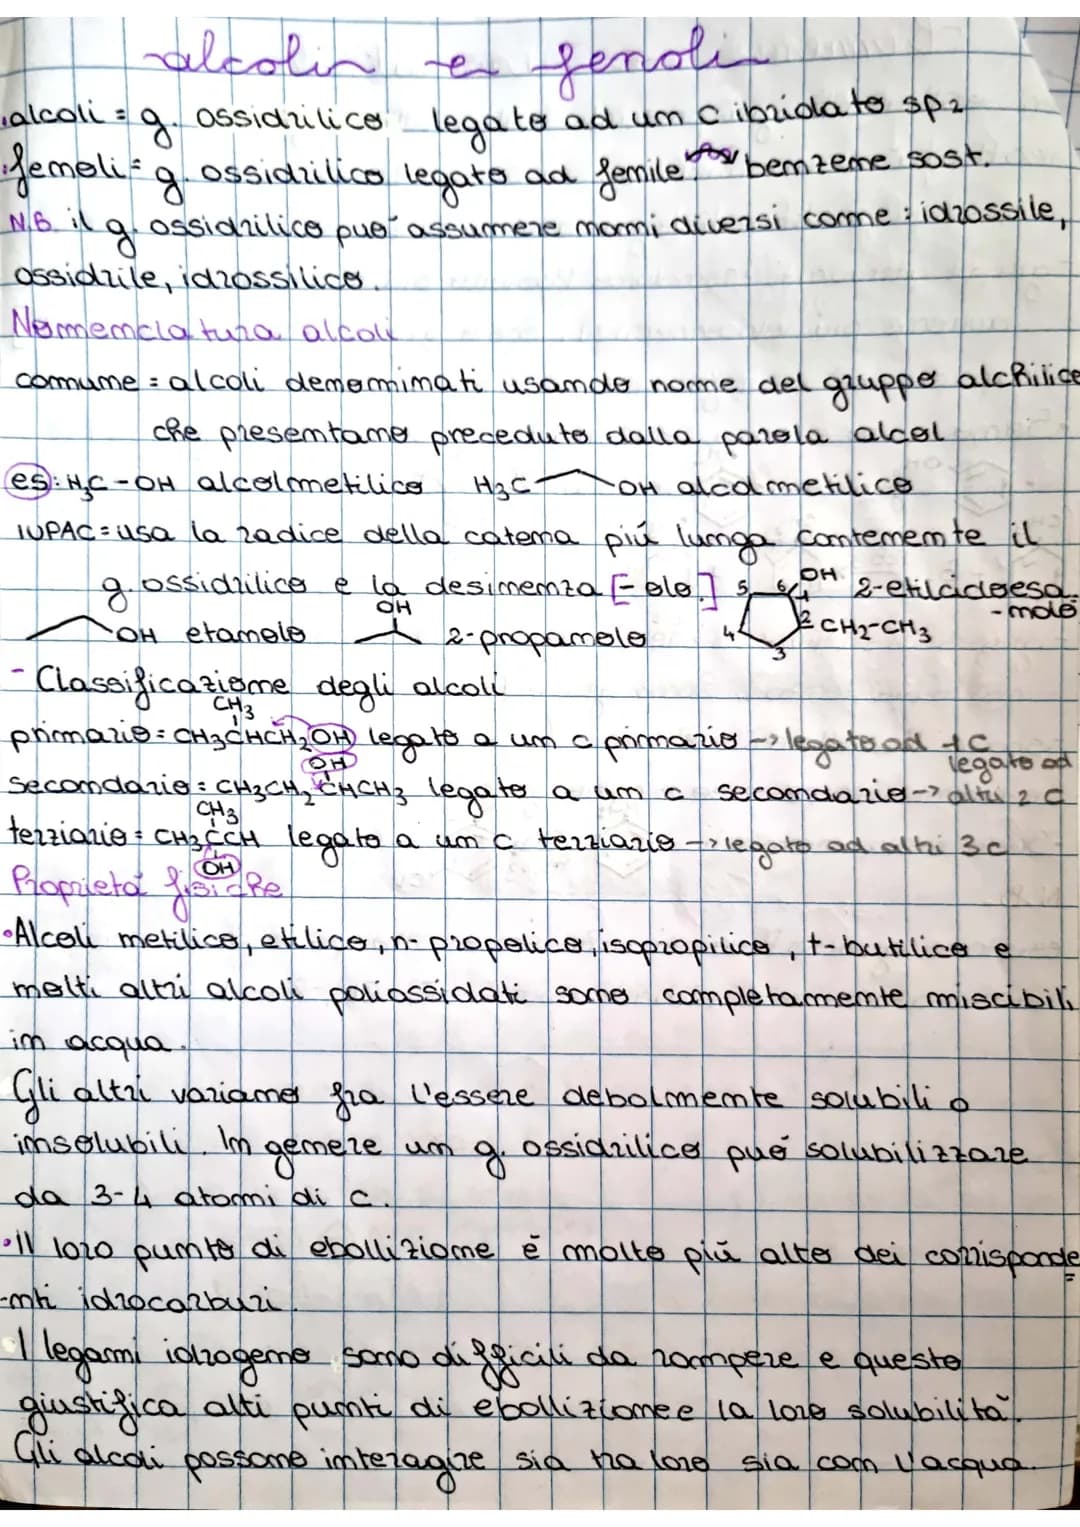 alcolin e fenoli
.alcoli = g. ossidrilico legato ad un C ibridato sp2
.fenoli = g. ossidrilico legato ad fenile benzene sost.
N.B. il g. ossidrilico puo' assumere nomi diversi come : idrossile,
ossidrile, idrossilico.
Nomenclatura alcoli
comune = alcoli denominati usando nome del gruppo alchilico
che presentano preceduto dalla parola alcol
es: H3C-OH alcol metilico H3C OH alcol metilico
IUPAC = usa la radice della catena piú lunga contenente il
g. ossidrilico e la desinenza [-olo.] 5 6 1 OH 2-etilcicloesa
-nolo
OH etanolo OH 2-propanolo 4 3 2 CH2-CH3
- Classificazione degli alcoli
CH3
primario = CH3CHCH2OH legato a un c primario -> legato ad 1 C
OH
secondario = CH3CH2CHCH3 legato a un c secondario -> legato ad altri 2 C
CH3
terziario = CH3CCH legato a un C terziario -> legato ad altri 3 C
OH
Proprietá fisiche
•Alcoli metilico, etilico, n-propolico, isopropilico, t-butilico e
molti altri alcoli poliossidati sono completamente miscibili
in acqua.
Gli altri variano fra l'essere debolmente solubili o
insolubili. In genere un g. ossidrilico puó solubilizzare
da 3-4 atomi di C.
•Il loro punto di ebollizione é molto piú alto dei corrisponde
-nti idrocarburi.
•I legami idrogeno sono difficili da rompere e questo
giustifica alti punti di ebollizione e la loro solubilitá.
Gli alcoli possono interagire sia tra loro sia con l'acqua.